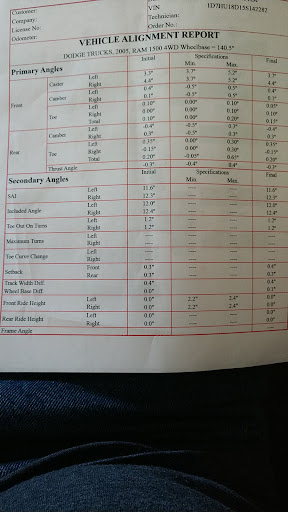 Customer:
Company:
License No:
Odometer:
VIN 1D7HU18D15S142287
Technician:
Order No.:
VEHICLE ALIGNMENT REPORT
DODGE TRUCKS, 2005, RAM 1500 4WD Wheelbase = 140.5"
Primary Angles Initial Specifications Final
Min. Max.
Front Caster Left 3.3° 3.7° 5.2° 3.7°
Right 4.4° 3.7° 5.2° 4.4°
Camber Left 0.4° -0.5° 0.5° 0.4°
Right 0.1° -0.5° 0.5°
Toe Left 0.10° 0.00° 0.10° 0.05°
Right 0.00° 0.00° 0.10° 0.10°
Total 0.10° 0.00° 0.20° 0.15°
Rear Camber Left -0.4° -0.5° 0.3° -0.4°
Right 0.5° -0.5° 0.3°
Toe Left 0.35° 0.00° 0.30° 0.35°
Right -0.15° 0.00° 0.30° -0.15°
Total 0.20° -0.05° 0.65° 0.20°
Thrust Angle -0.3° -0.4° 0.4° -0.3°
Secondary Angles
SAI Left 11.6° ---- ---- 11.6°
Right 12.3° ---- ---- 12.3°
Included Angle Left 12.0° ---- ---- 12.0°
Right 12.4° ---- ---- 12.4°
Toe Out On Turns Left 1.2° ---- ---- 1.2°
Right 1.2° ---- ---- 1.2°
Maximum Turns Left ---- ---- ---- ----
Right ---- ---- ---- ----
Toe Curve Change Left ---- ---- ---- ----
Right ---- ---- ---- ----
Setback Front 0.1° ---- ---- 0.4°
Rear 0.3° ---- ---- 0.3°
Track Width Diff. 0.4° ---- ---- 0.4°
Wheel Base Diff. 0.0° ---- ---- 0.1°
Front Ride Height Left 0.0" 2.2" 2.4" 0.0"
Right 0.0" 2.2" 2.4" 0.0"
Rear Ride Height Left 0.0" ---- ---- 0.0"
Right 0.0" ---- ---- 0.0"
Frame Angle ---- ---- ---- ----